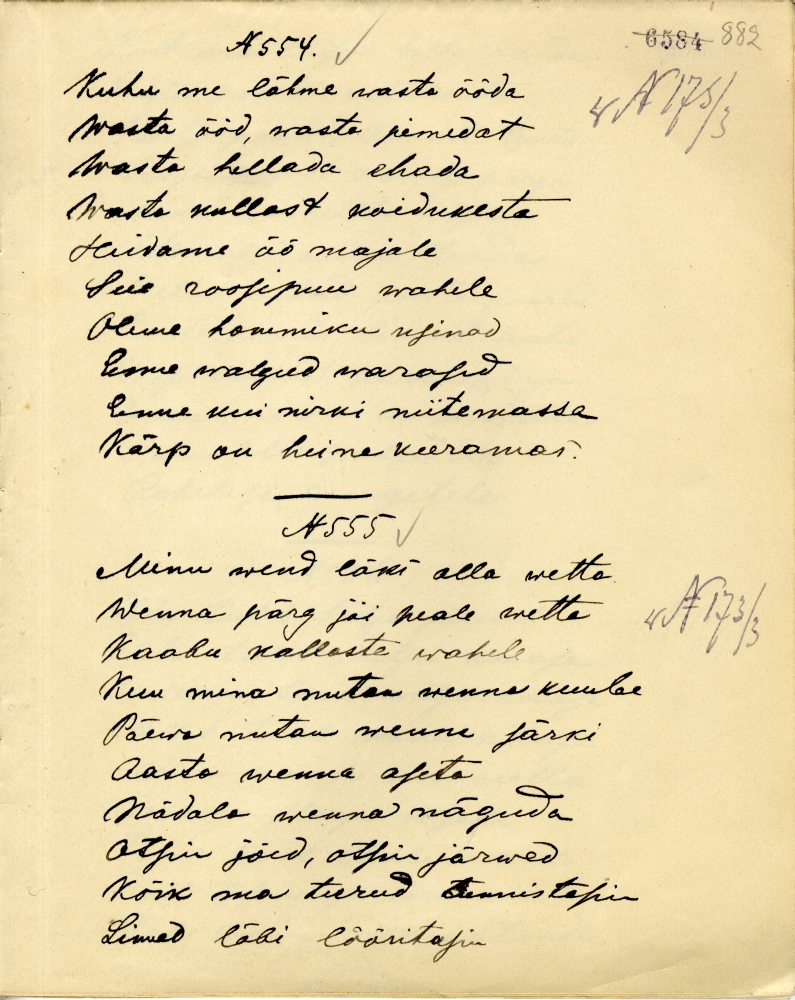 6584 882
N 554.
N 175/3
Kuhu me lähme wasta ööda
Wasta ööd, wasta pimedat
Wasta hellada ehada
Wasta kullast koidukesta
Heidame öö majale
Siie roosipuu wahele
Oleme hommiku usinad
Enne walged warased
Enne kui nirki niitemassa
Kärp on heine keeramas.
N 555
Minu wend läks alla wetta
N 173/3
Wenna pärg jäi peale wetta
Kaabu kallaste wahele
Kuu mina nutan wenna kuube
Päewa nutan wenna särki
Aasta wenna aseta
Nädala wenna näguda
Otsin jõed, otsin järwed
Kõik ma teerud tunnistasin
Linnad läbi lööritasin